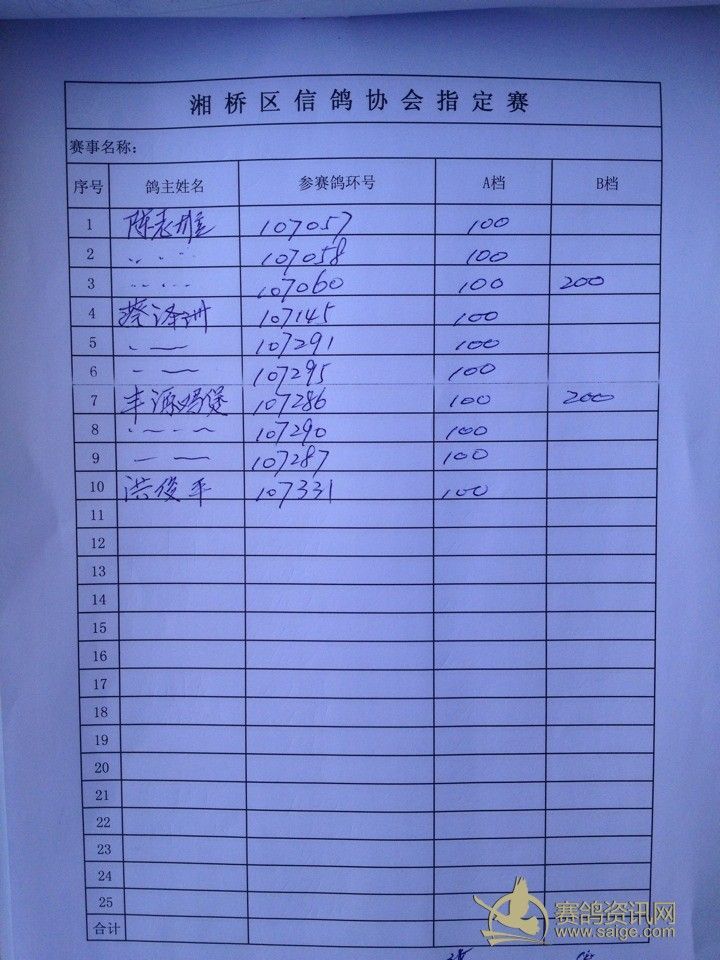 湘桥区信鸽协会指定赛
赛事名称:
序号 鸽主姓名 参赛鸽环号 A档 B档
1 陈志雄 107057 100
2 〃 〃 107058 100
3 〃 〃 107060 100 200
4 蔡泽洲 107145 100
5 107291 100
6 107295 100
7 丰源鸽煲 107286 100 200
8 107290 100
9 107287 100
10 洪俊平 107331 100
11
12
13
14
15
16
17
18
19
20
21
22
23
24
25
合计
赛鸽资讯网
www.saige.com